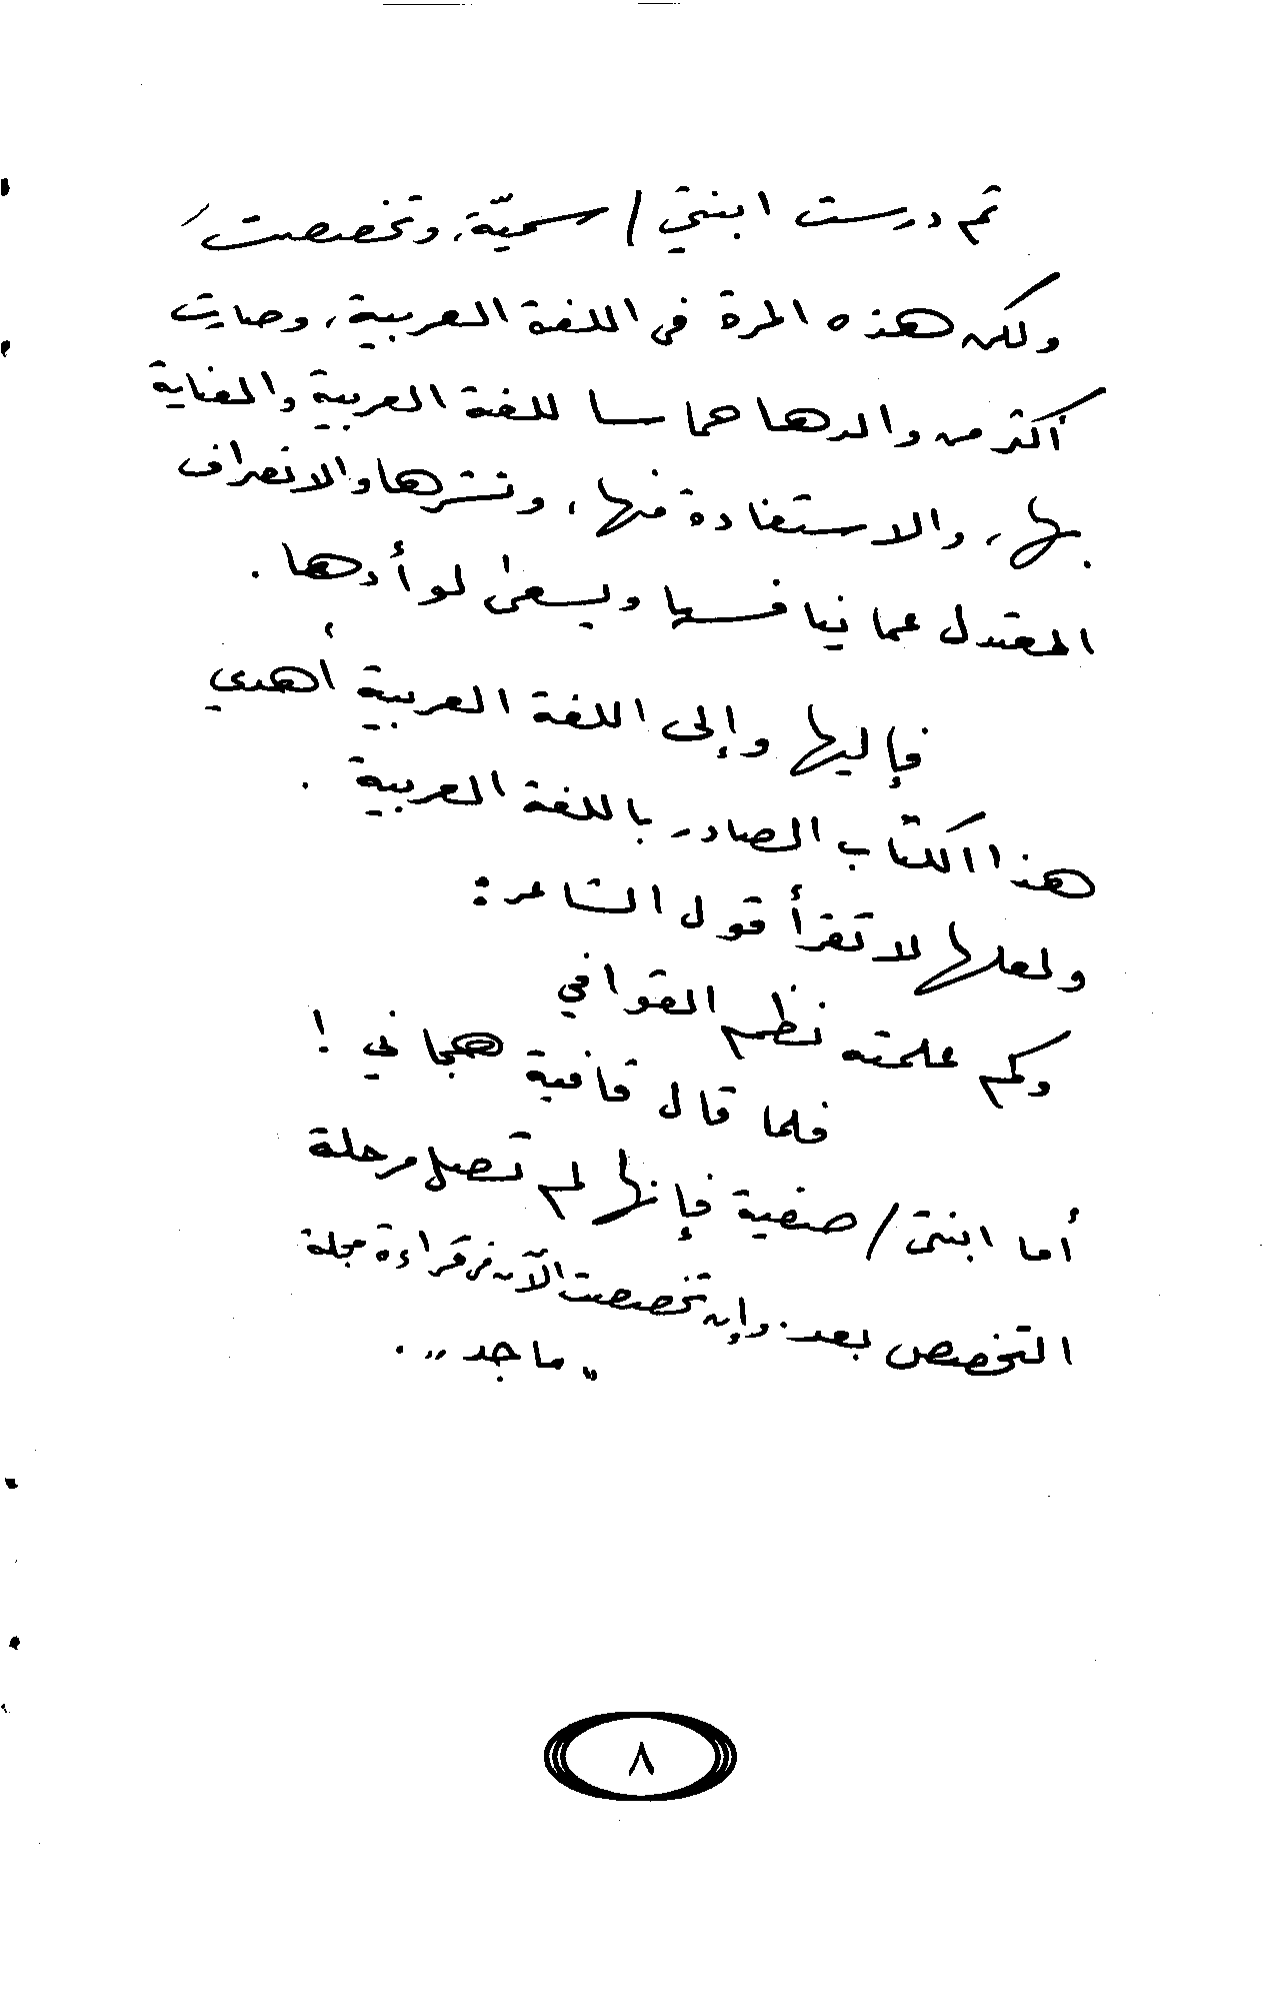 ثم درست ابنتي / سميّة، وتخصصت
ولكن هذه المرة في اللغة العربية، وصارت
أكثر من والدها حماسا للغة العربية والعناية
بها، والاستفادة منها، ونشرها والانصراف
المعتدل عما ينافسها ويسعى لوأدها.
فإليها وإلى اللغة العربية أهدي
هذا الكتاب الصادر باللغة العربية.
ولعلها لا تقرأ قول الشاعر:
وكم علمته نظم القوافي
فلما قال قافية هجاني!
أما ابنتي / صفية فإنها لم تصل مرحلة
التخصص بعد. وإن تخصصت الآن في قراءة مجلة
„ماجد„.
٨